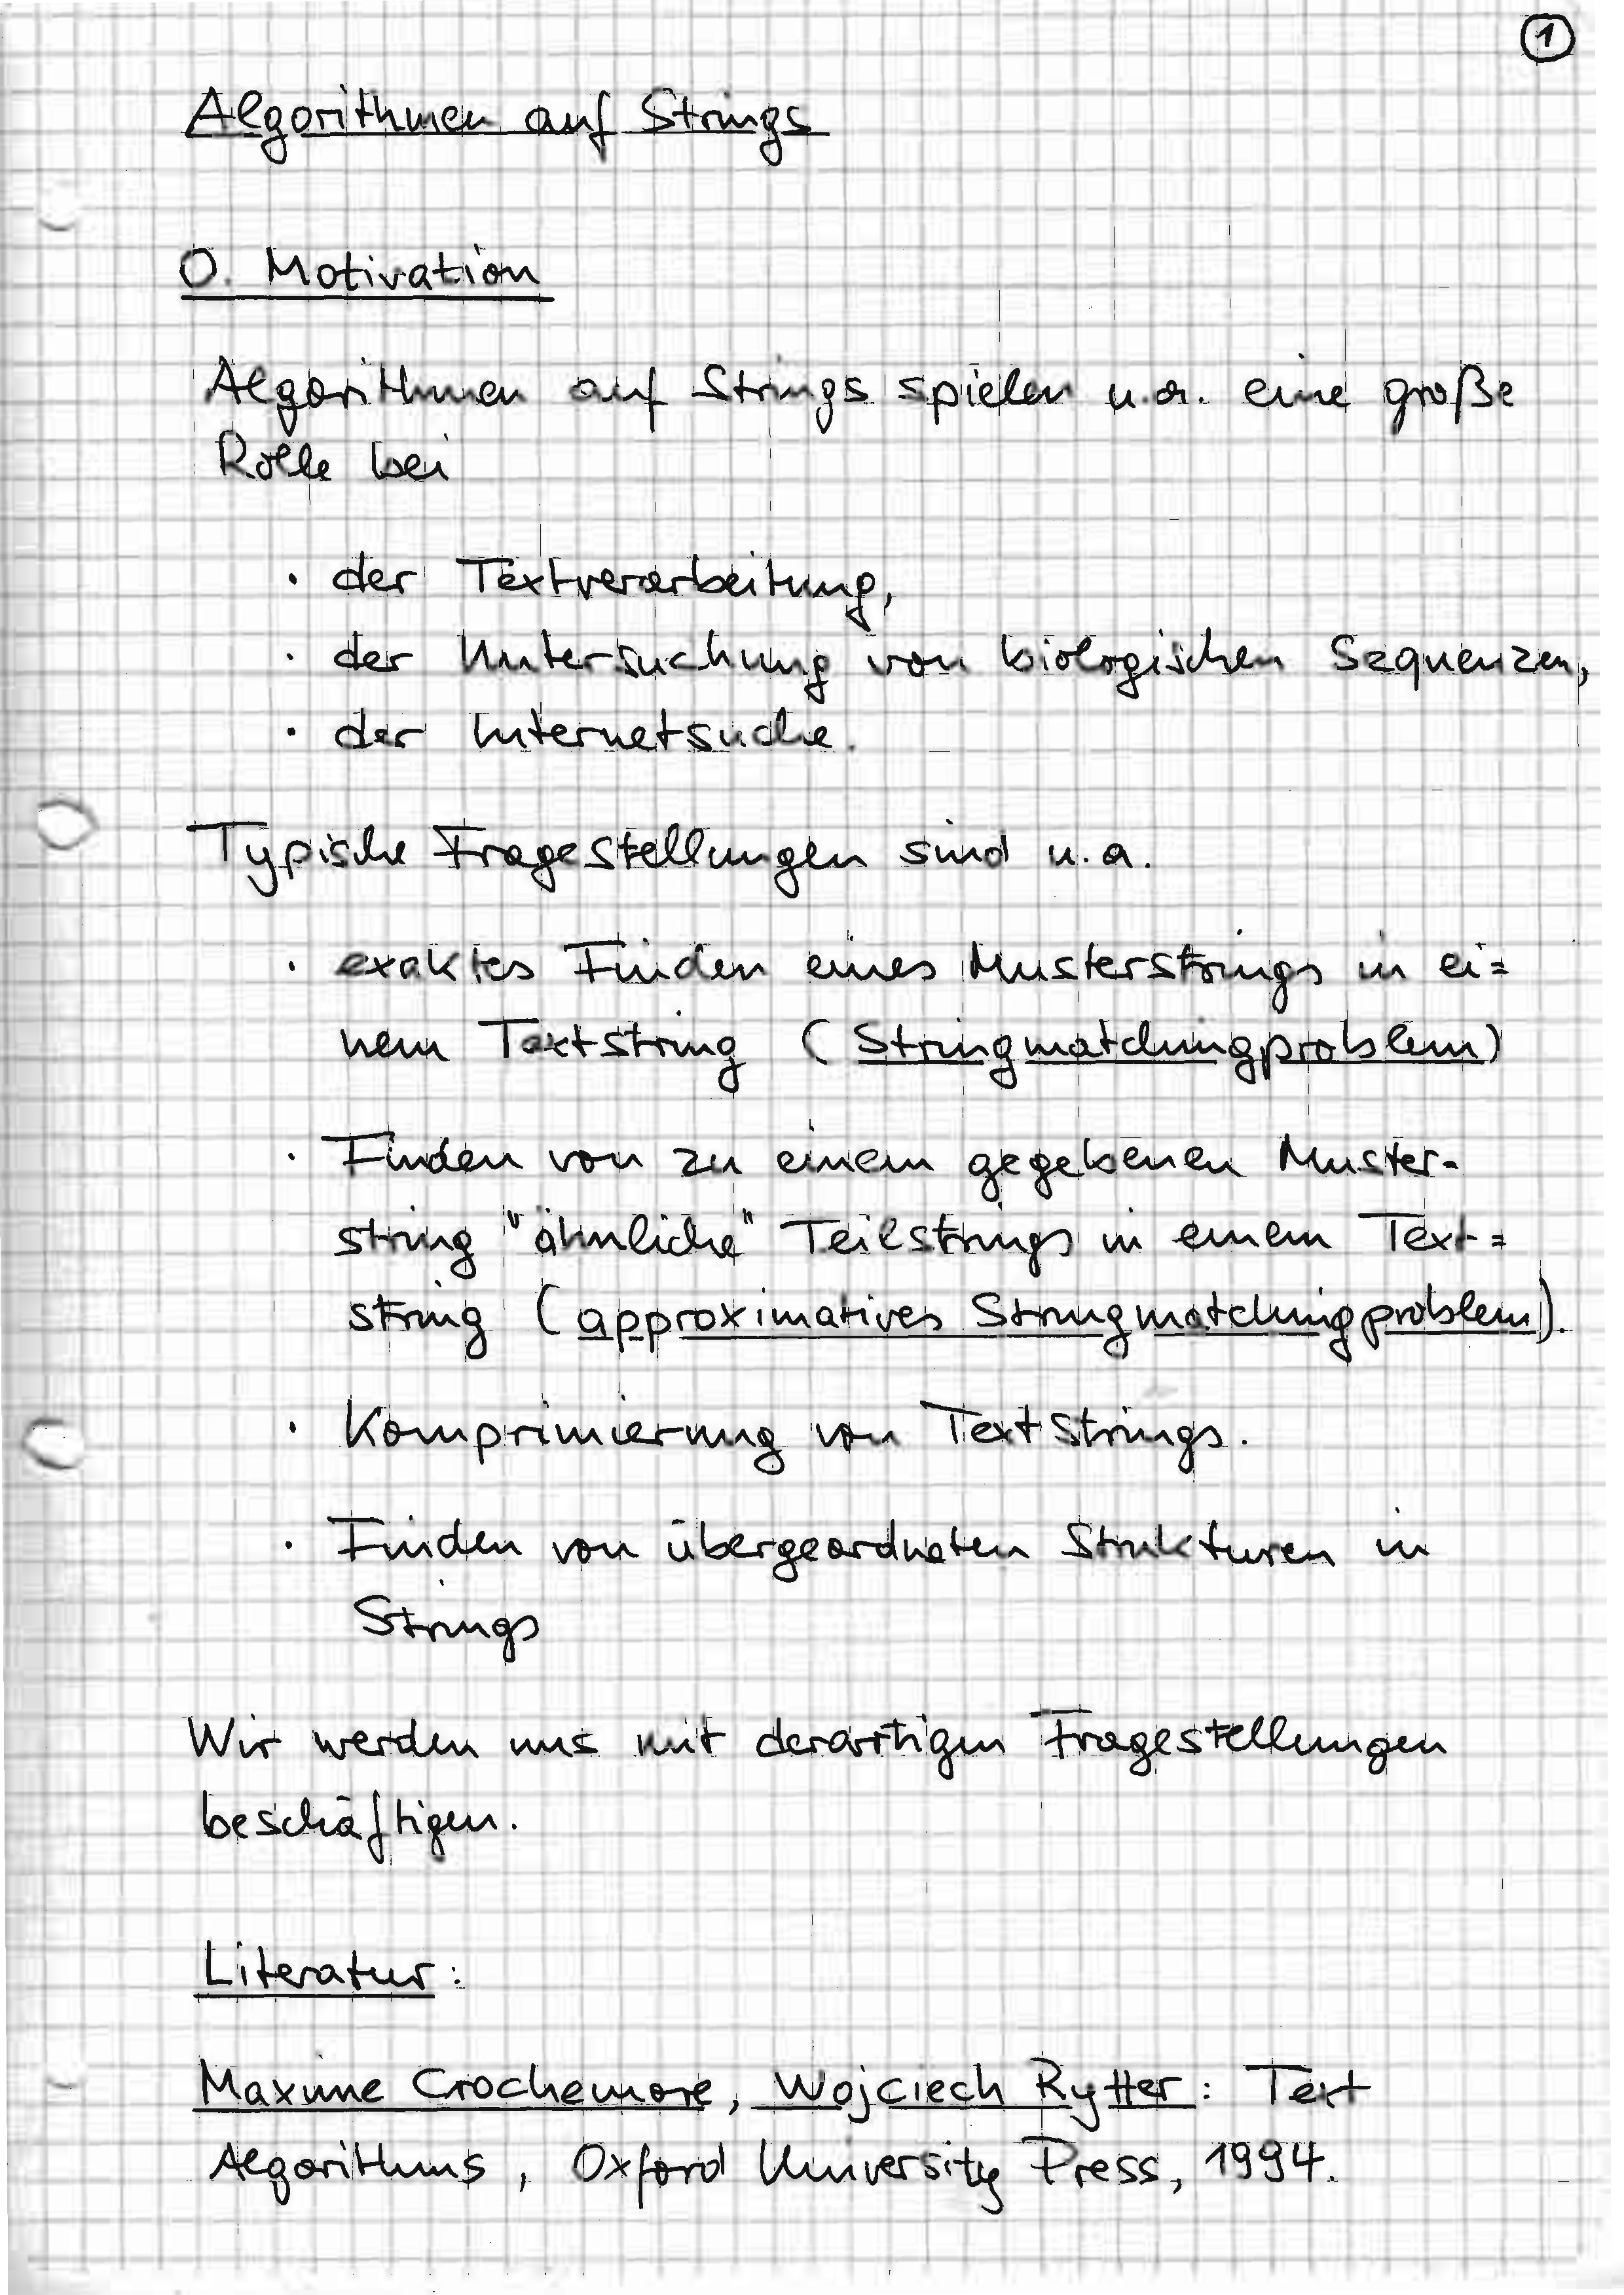 1
Algorithmen auf Strings
0. Motivation
Algorithmen auf Strings spielen u.a. eine große
Rolle bei
· der Textverarbeitung,
· der Untersuchung von biologischen Sequenzen,
· der Internetsuche.
Typische Fragestellungen sind u.a.
· exaktes Finden eines Musterstrings in ei=
nem Textstring (Stringmatchingproblem)
· Finden von zu einem gegebenen Muster-
string "ähnliche" Teilstrings in einem Text=
string (approximatives Stringmatchingproblem).
· Komprimierung von Textstrings.
· Finden von übergeordneten Strukturen in
Strings
Wir werden uns mit derartigen Fragestellungen
beschäftigen.
Literatur:
Maxime Crochemore, Wojciech Rytter: Text
Algorithms, Oxford University Press, 1994.